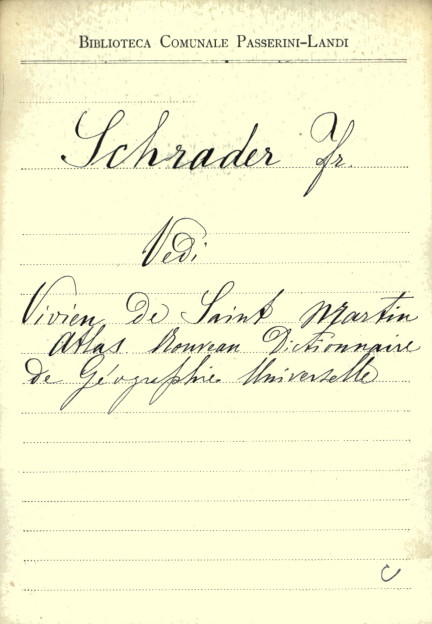 BIBLIOTECA COMUNALE PASSERINI-LANDI
Schrader Fr.
Vedi
Vivien de Saint Martin
Atlas Nouveau Dictionnaire
de Géographie Universelle
C